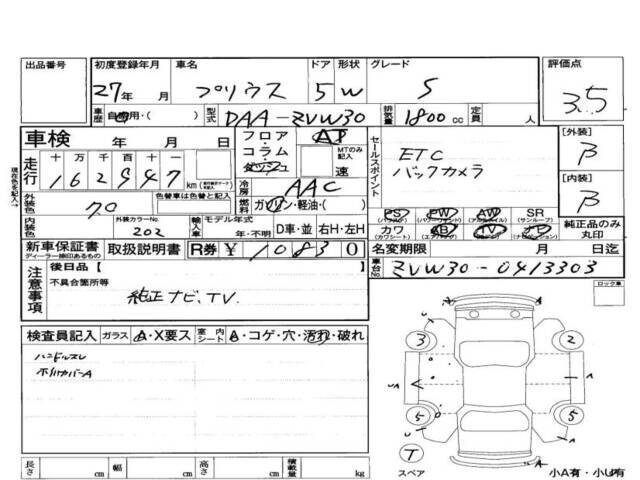 出品番号
初度登録年月 車名 ドア 形状 グレード 評価点
27年 月 プリウス 5 W S 3.5
車歴 自家用・( ) 型式 DAA-ZVW30 排気量 1800 cc 定員 人
車検 年 月 日 フロア・コラム・ダッシュ AT MTのみ記入 速
走行 十 万 千 百 十 一
162947 km
冷房 AAC
燃料 ガソリン・軽油・( )
セールスポイント ETC
バックカメラ
[外装] B
[内装] B
純正品のみ丸印
PS PW AW SR
(パワーステ) (パワーウィンド) (アルミホイル) (サンルーフ)
カワ AB TV ナビ
(カワシート) (エアバッグ) (ナビゲーション)
外装色 70
内装色 外装カラーNo. 202 輸入車 モデル年式 年・不明 D車・並 右H・左H
新車保証書 ディーラー捺印あるもの 取扱説明書 R券 ¥ 10830 名変期限 月 日迄
車台No. ZVW30-0413303
現在色を記入→
注意事項 後日品[ ]
不具合箇所等
純正ナビ、TV.
ロック車
検査員記入 ガラス A・X要ス 室内シート A・コゲ・穴・汚れ・破れ
ハンドルスレ
3 2
A
U A A
5 5
T
スペア
小A有・小U有
長さ cm 幅 cm 高さ cm 積載量 kg